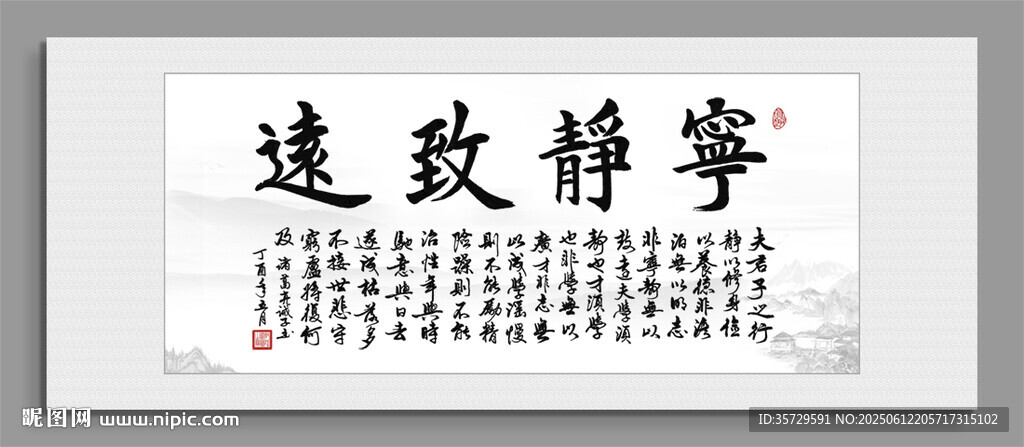 寧靜致遠
夫君子之行
静以修身俭
以養德非澹
泊無以明志
非寧靜無以
致遠夫學須
静也才須學
也非學無以
廣才非志無
以成學滛慢
則不能勵精
险躁則不能
治性年與時
馳意與日去
遂成枯落多
不接世悲守
窮廬將復何
及 諸葛亮诫子書
丁酉年五月
昵图网 www.nipic.com
ID:35729591 NO:20250612205717315102